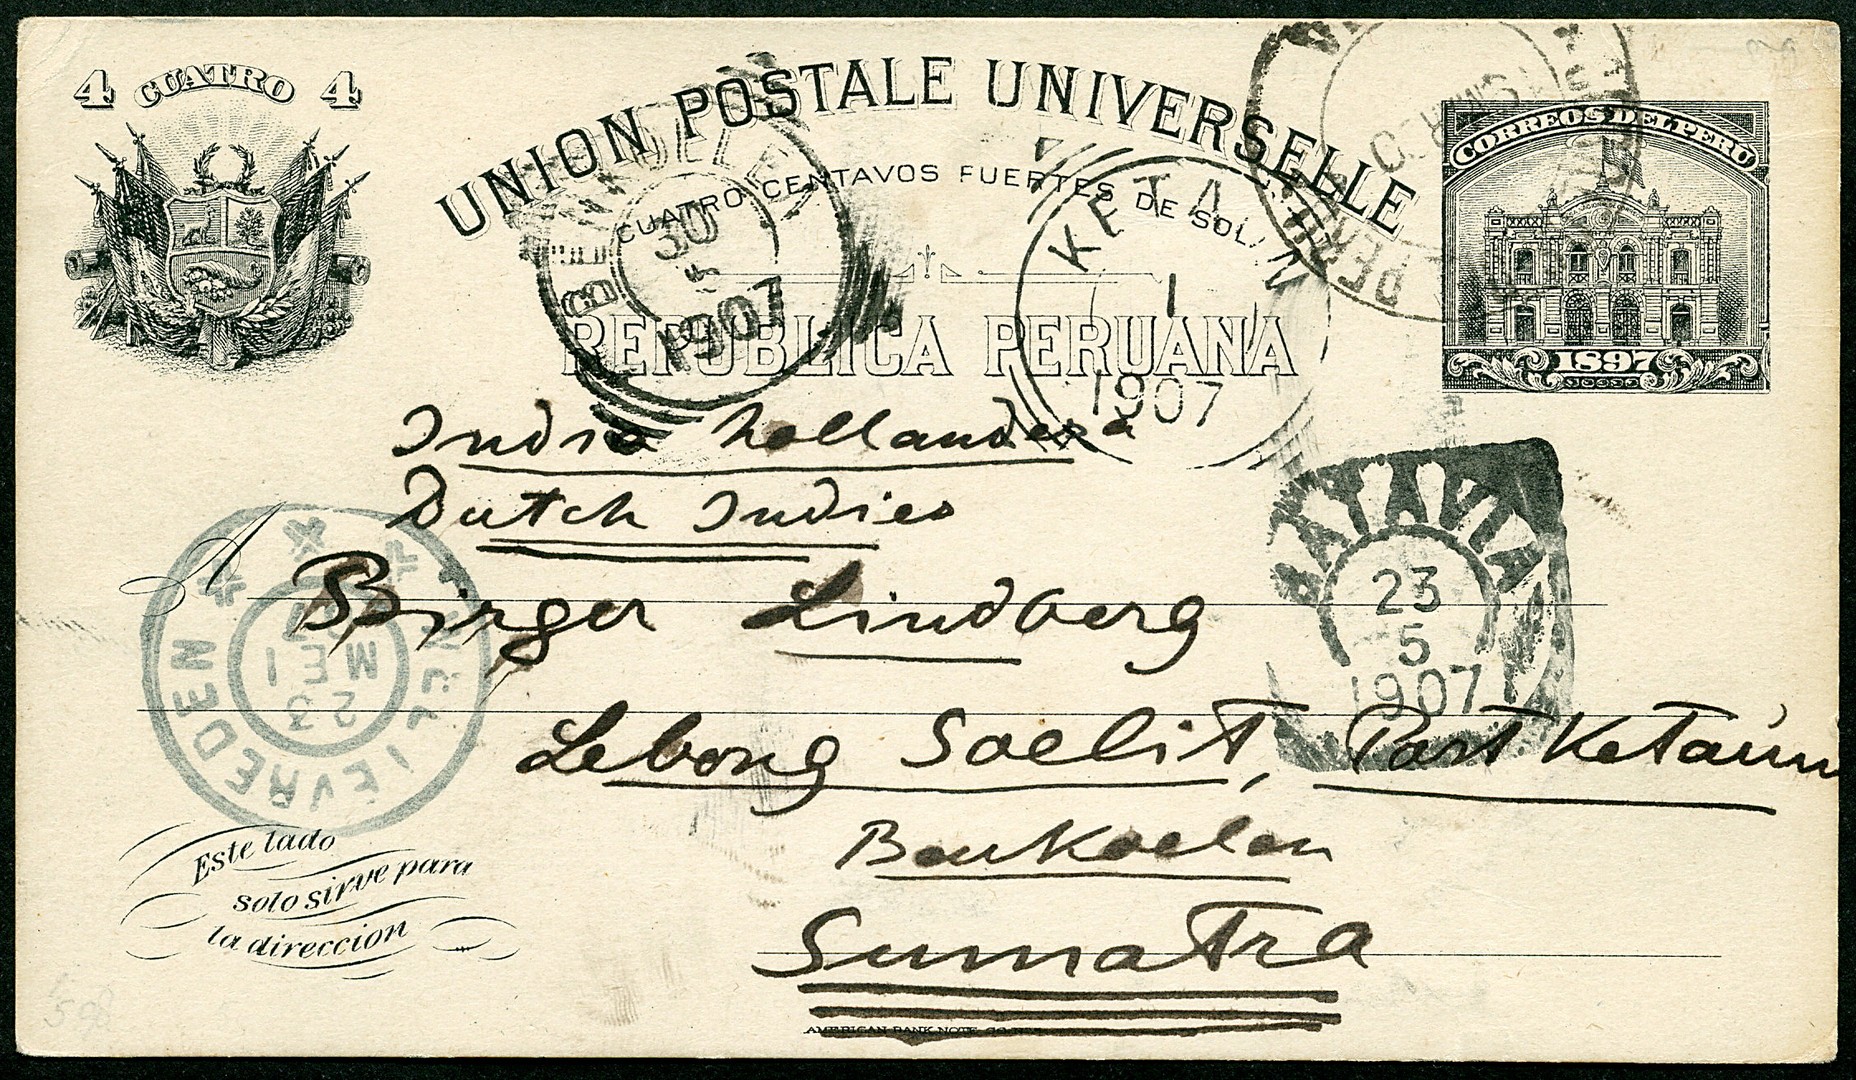 4 CUATRO 4
UNION POSTALE UNIVERSELLE
CUATRO CENTAVOS FUERTES DE SOL
REPUBLICA PERUANA
CORREOS DEL PERU
1897
30
5
1907
KETA
1
1907
PERU
India hollandesa
Dutch Indies
A Birger Lindberg
Lebong Soelit, Port Ketaun
Benkoelen
Sumatra
BATAVIA
23
5
1907
WELTEVREDEN
23
MEI
Este lado
solo sirve para
la direccion
AMERICAN BANK NOTE CO.
598